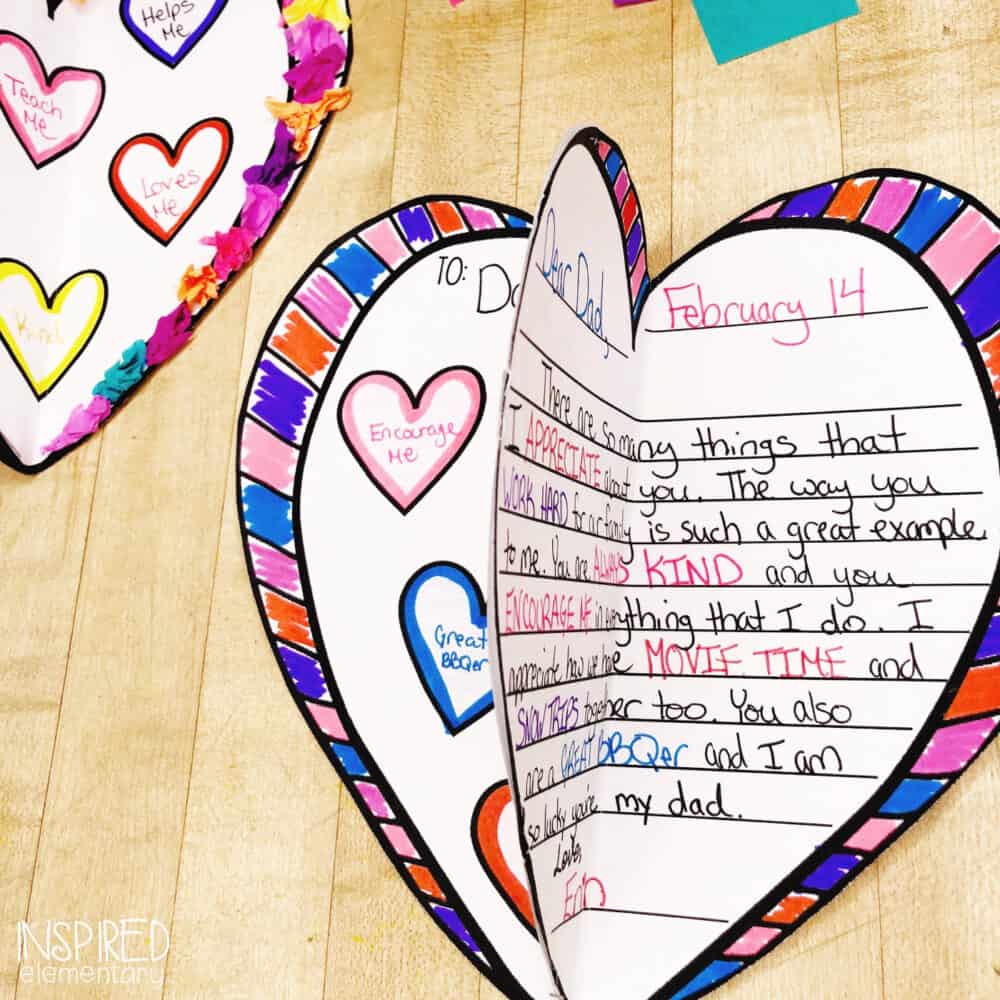 Helps
Me
Teach
Me
Loves
Me
Kind
TO: Da
Encourage
Me
Great
BBQer
Dear Dad,
February 14
There are so many things that
I APPRECIATE about you. The way you
WORK HARD for our family is such a great example
to me. You are ALWAYS KIND and you
ENCOURAGE ME in everything that I do. I
appreciate how we have MOVIE TIME and
SNOW TRIPS together too. You also
are a GREAT BBQer and I am
so lucky you're my dad.
Love,
Erin
INSPIRED
elementary